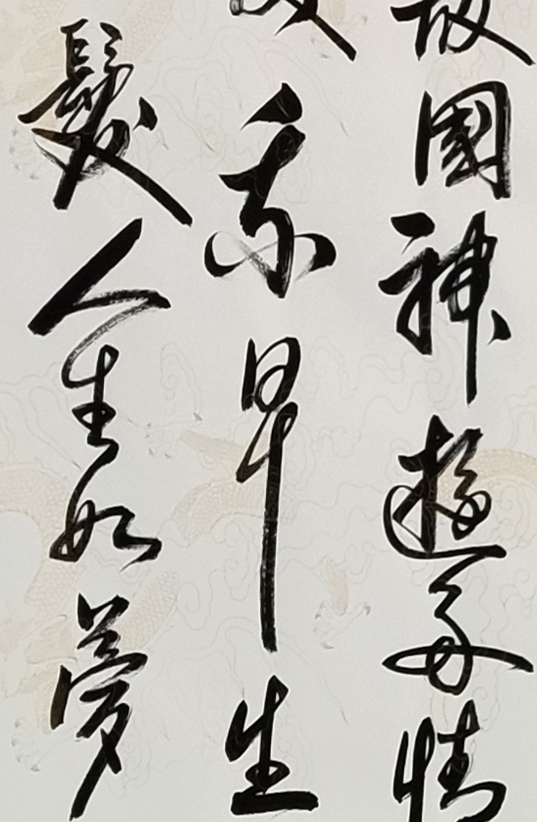 故國神遊多情
我早生
髮人生如夢